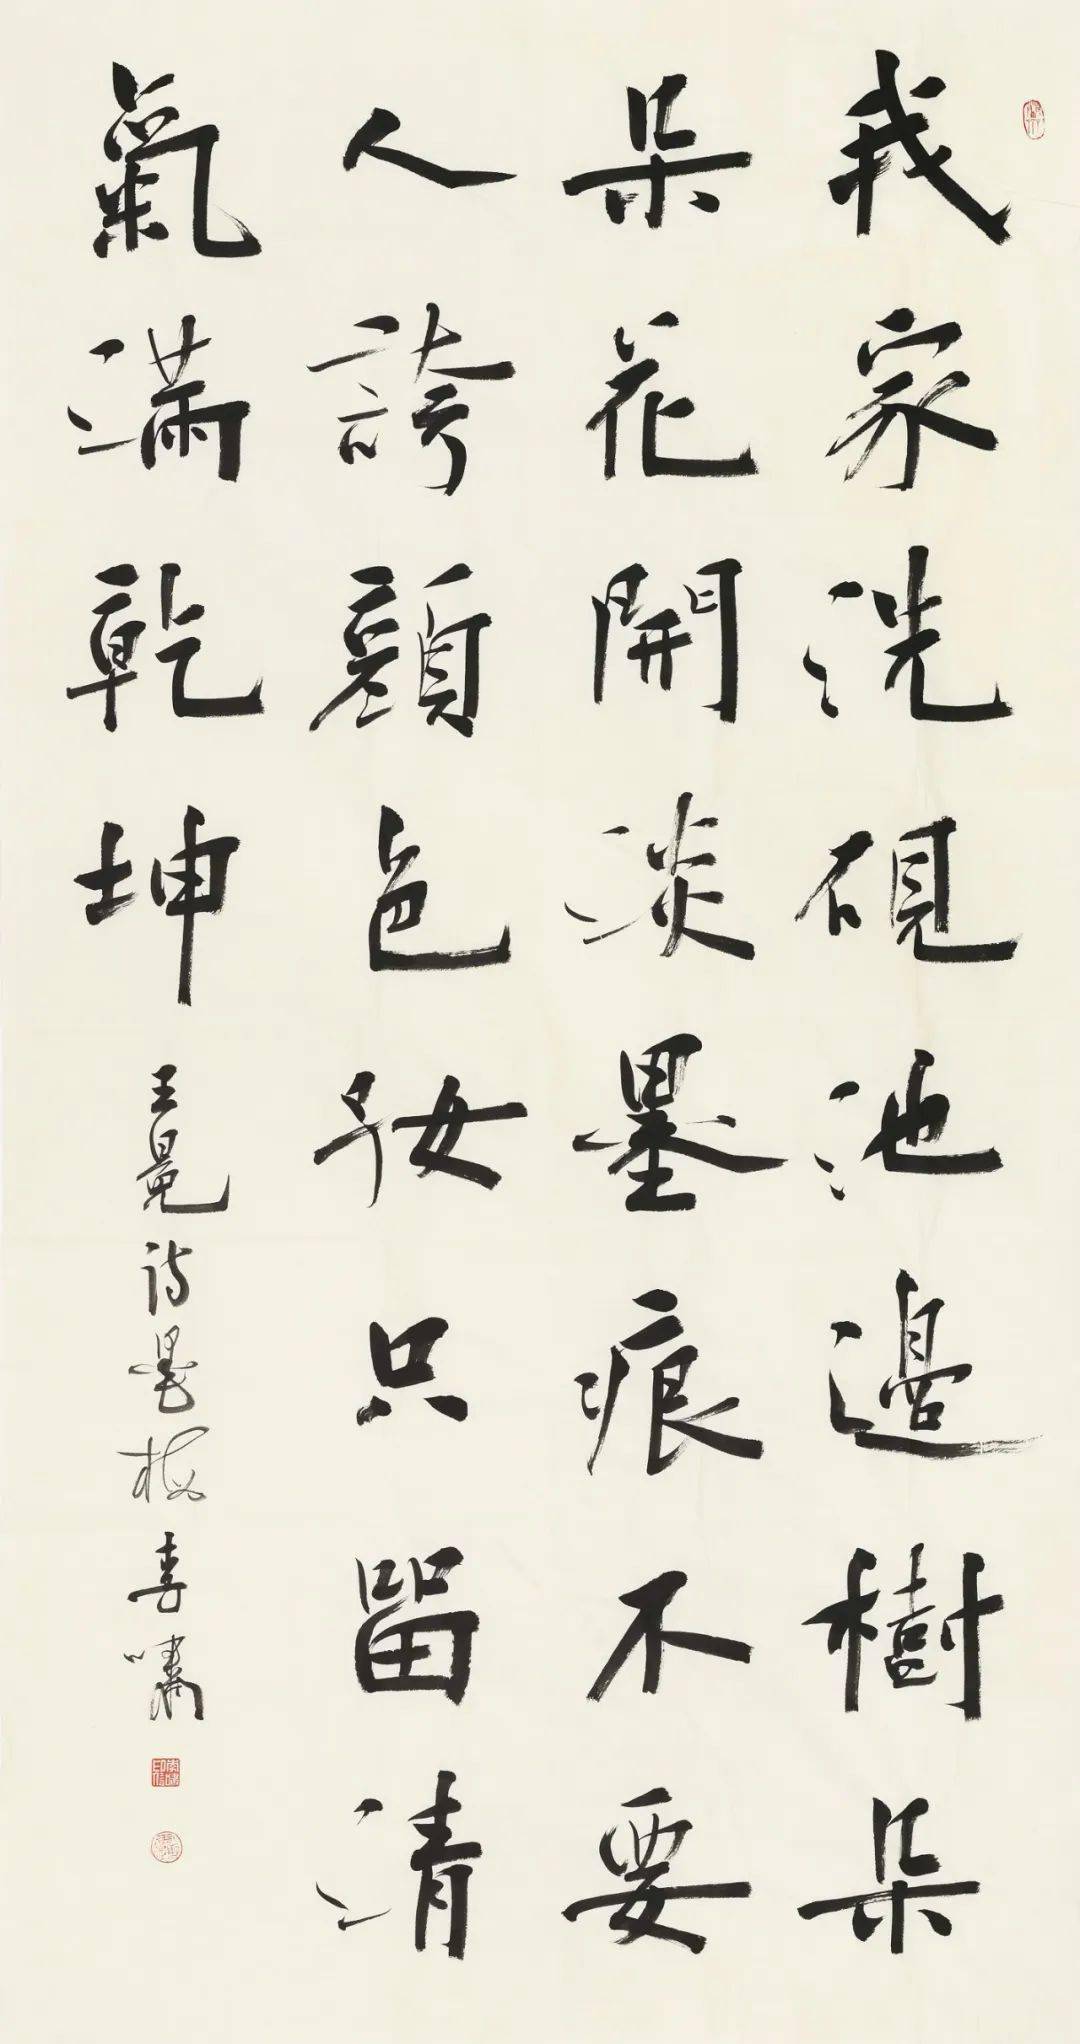 我家洗硯池邊樹朵
朵花開淡墨痕不要
人誇顏色好只留清
氣滿乾坤
王冕诗墨梅 李嘯